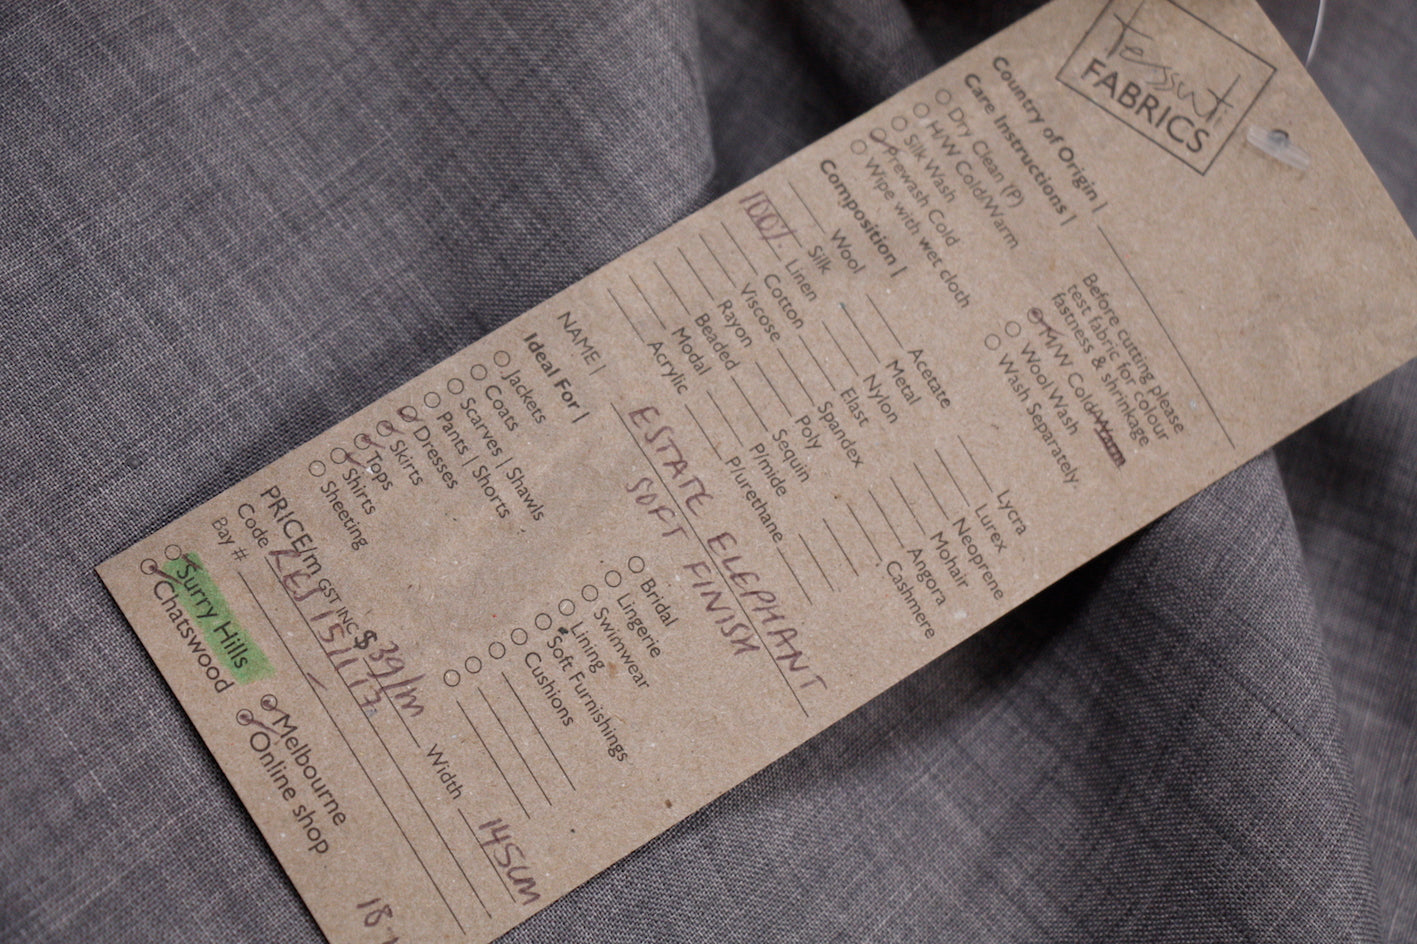 Tessuti
FABRICS
Country of Origin |
Care Instructions |
Dry Clean (P)
H/W Cold/Warm
Silk Wash
Prewash Cold
Wipe with wet cloth
Before cutting please
test fabric for colour
fastness & shrinkage
M/W Cold/Warm
Wool Wash
Wash Separately
Composition |
Wool
Silk
100% Linen
Cotton
Viscose
Rayon
Beaded
Modal
Acrylic
Acetate
Metal
Nylon
Elast
Spandex
Poly
Sequin
P/mide
P/urethane
Lycra
Lurex
Neoprene
Mohair
Angora
Cashmere
NAME | ESTATE ELEPHANT
SOFT FINISH
Ideal For |
Jackets
Coats
Scarves | Shawls
Pants | Shorts
Dresses
Skirts
Tops
Shirts
Sheeting
Bridal
Lingerie
Swimwear
Lining
Soft Furnishings
Cushions
PRICE/m GST INC $ 39/m Width 145cm
Code
Bay #
Surry Hills
Chatswood
Melbourne
Online shop